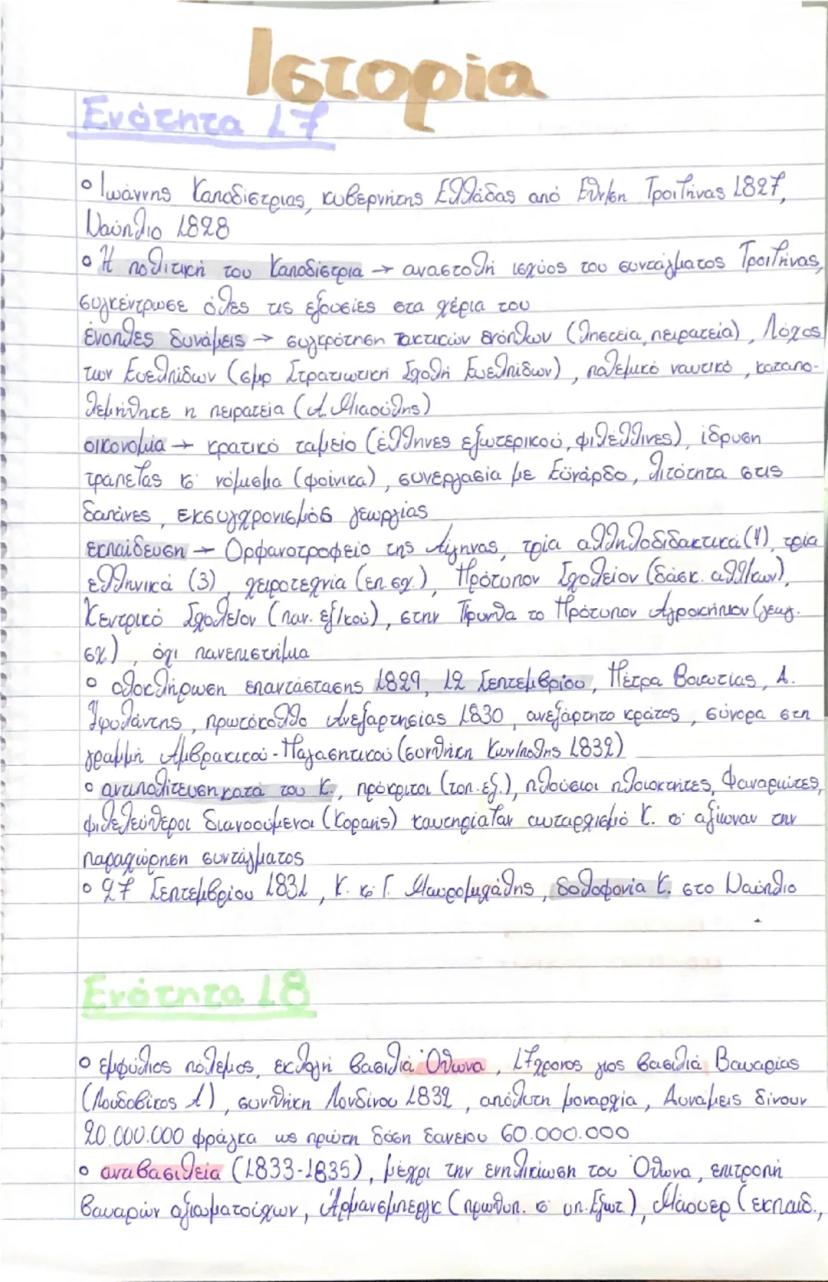 Ιστορία
Ενότητα 17
• Ιωάννης Καποδίστριας, κυβερνήτης Ελλάδας από Εθν/ση Τροιζήνας 1827,
Ναύπλιο 1828
• Η πολιτική του Καποδίστρια → αναστολή ισχύος του συντάγματος Τροιζήνας,
συγκέντρωσε όλες τις εξουσίες στα χέρια του
ένοπλες δυνάμεις → συγκρότηση τακτικών ενόπλων (ληστεία, πειρατεία), Λόχος
των Ευελπίδων (σμρ Στρατιωτική Σχολή Ευελπίδων), πολεμικό ναυτικό, καταπο-
λεμήθηκε η πειρατεία (Α. Μιαούλης)
οικονομία → κρατικό ταμείο (έλληνες εξωτερικού, φιλέλληνες), ίδρυση
τράπεζας κ' νόμισμα (φοίνικα), συνεργασία με Εϋνάρδο, λιτότητα στις
δαπάνες, εκσυγχρονισμός γεωργίας
εκπαίδευση → Ορφανοτροφείο της Αίγινας, τρία αλληλοδιδακτικά (4), τρία
ελληνικά (3), χειροτεχνία (επ. σχ.), Πρότυπον Σχολείον (δάσκ. αλλ/κων),
Κεντρικό Σχολείον (παν. εξ/κού), στην Τίρυνθα το Πρότυπον Αγροκήπιον (γεωγ.
σχ.), όχι πανεπιστήμιο
• ολοκλήρωση επανάστασης 1829, 12 Σεπτεμβρίου, Πέτρα Βοιωτίας, Δ.
Υψηλάντης, πρωτόκολλο Ανεξαρτησίας 1830, ανεξάρτητο κράτος, σύνορα στη
γραμμή Αμβρακικού-Παγασητικού (συνθήκη Κων/πολης 1832)
• αντιπολίτευση κατά του Κ., πρόκριτοι (τοπ. εξ.), πλούσιοι πλοιοκτήτες, Φαναριώτες,
φιλελεύθεροι διανοούμενοι (Κοραής) καυτηρίαζαν αυταρχισμό Κ. κ' αξίωναν την
παραχώρηση συντάγματος
• 27 Σεπτεμβρίου 1831, Κ. κ' Γ. Μαυρομιχάλης, δολοφονία Κ. στο Ναύπλιο
Ενότητα 18
• εμφύλιος πόλεμος, εκλογή βασιλιά Όθωνα, 17χρονος γιος βασιλιά Βαυαρίας
(Λουδοβίκος Α'), συνθήκη Λονδίνου 1832, απόλυτη μοναρχία, Δυνάμεις δίνουν
20.000.000 φράγκα ως πρώτη δόση δανείου 60.000.000
• αντιβασιλεία (1833-1835), μέχρι την ενηλικίωση του Όθωνα, επιτροπή
Βαυαρών αξιωματούχων, Άρμανσμπεργκ (πρωθυπ. κ' υπ. Εξωτ.), Μάουερ (εκπαιδ.,